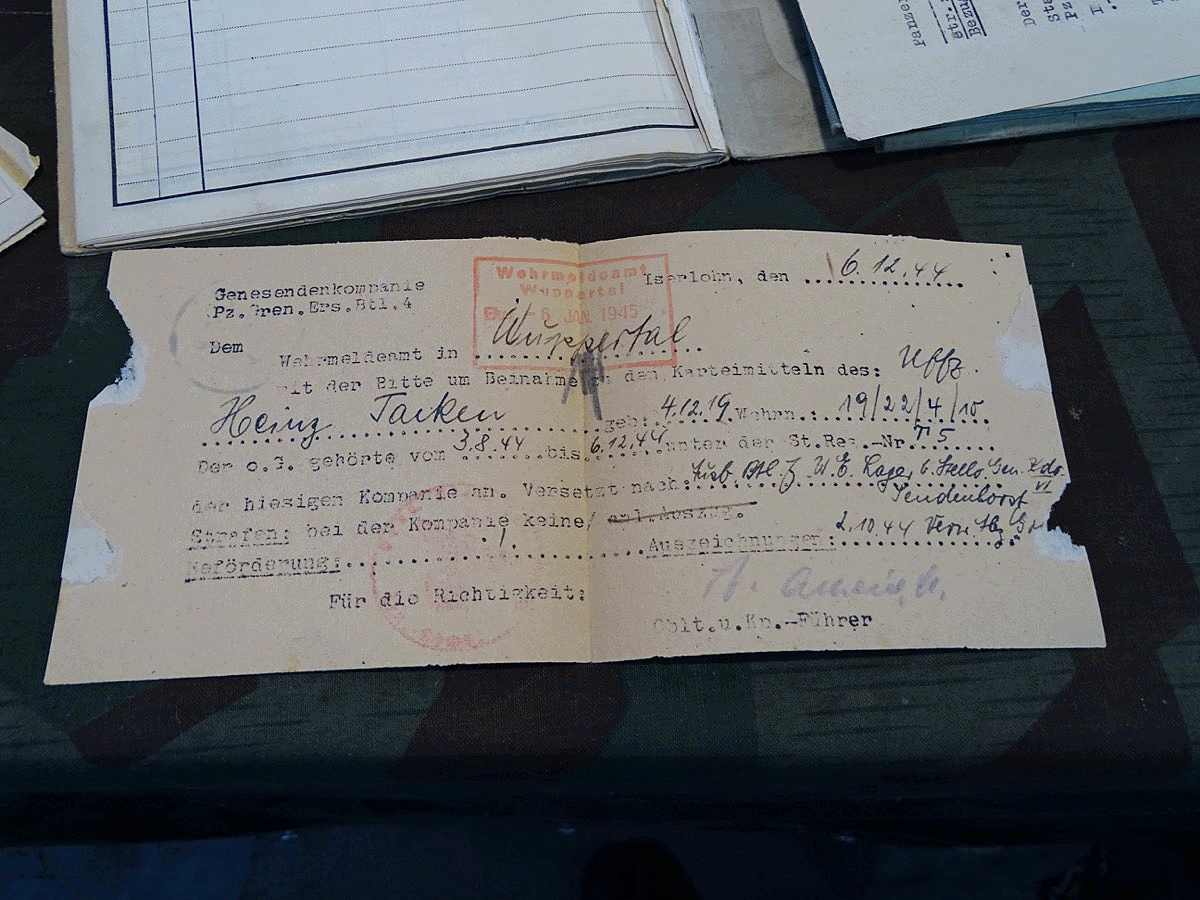 Genesendenkompanie
Pz.Gren.Ers.Btl.4
Wehrmeldeamt
Wuppertal
-6 JAN. 1945
Iserlohn, den 6.12.44
Dem
Wehrmeldeamt in Wuppertal
mit der Bitte um Beinahme den Karteimitteln des: Uffz.
Heinz Tacken geb: 4.12.19 Wehrn.: 19/22/4/10
Der o.G. gehörte vom 3.8.44 bis 6.12.44 unter der St.Res.-Nr. 5
der hiesigen Kompanie an. Versetzt nach: Btl. z. Lager
Gen. Kdo. VI
Strafen: bei der Kompanie keine/ Auszug.
2.10.44 Verw.
Beförderung: Auszeichnungen:
Für die Richtigkeit:
Oblt.u.Kp.-Führer